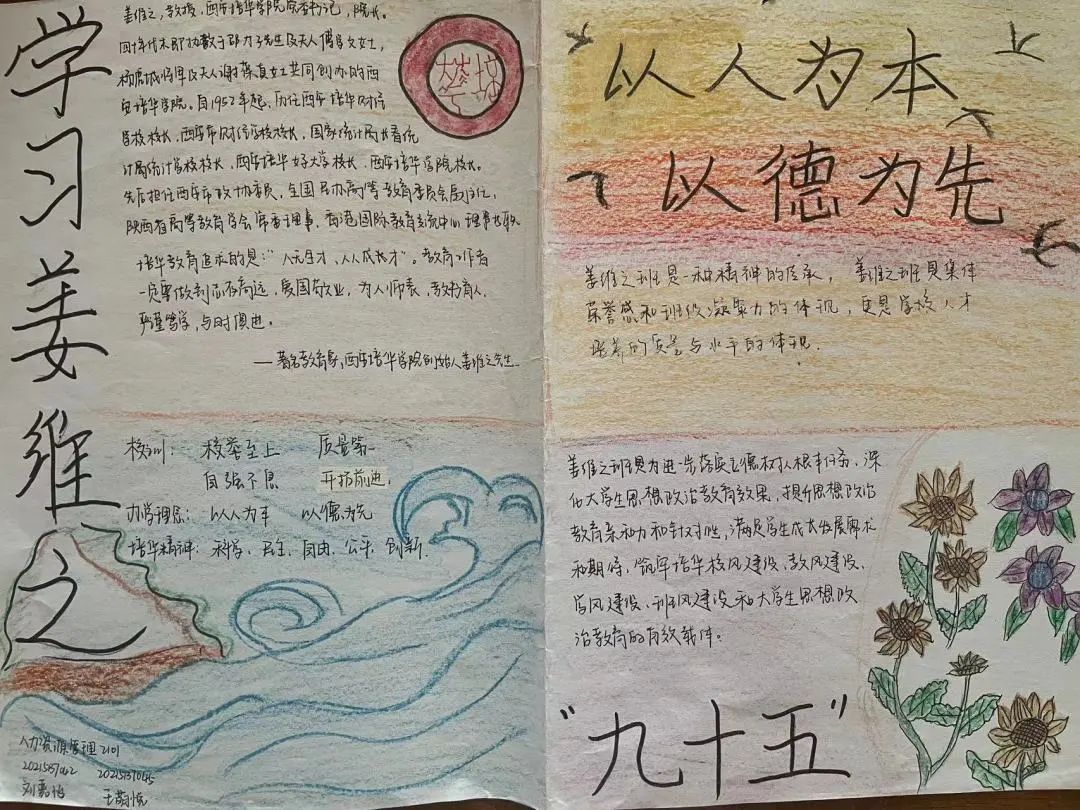 学习姜维之
姜维之，教授，西安培华学院党委书记，院长。
四十年代末即协教于邵力子先生及夫人傅学文女士，
杨虎城将军及夫人谢葆真女士共同创办的西
安培华学院。自1952年起，历任西安培华财经
学校校长，西安市财经学校校长，国家统计局
计局统计学校校长，西安培华女子大学校长，西安培华学院校长。
先后担任西安市政协委员，全国民办高等教育委员会副主任，
陕西省高等教育学会常委理事，香港国际教育交流中心理事长职
培华教育追求的是："人无全才，人人成才"。教育工作者
一定要做到志存高远，爱国敬业，为人师表，教书育人，
严谨笃学，与时俱进。
——著名教育家，西安培华学院创始人姜维之先生
培华
校训： 校誉至上 质量第一
自强不息 开拓前进
办学理念： 以人为本 以德为先
培华精神：科学、民主、自由、公平、创新
人力资源管理2101
刘嘉怡 王萌悦
以人为本
以德为先
姜维之班是一种精神的传承，姜维之班是集体
荣誉感和班级凝聚力的体现，更是学校人才
培养的质量与水平的体现.
姜维之班是为进一步落实立德树人根本任务，深
化大学生思想政治教育效果，提升思想政治
教育亲和力和针对性，满足学生成长发展需求
和期待，筑牢培华校风建设、教风建设、
学风建设、班风建设和大学生思想政
治教育的有效载体。
"九十五"